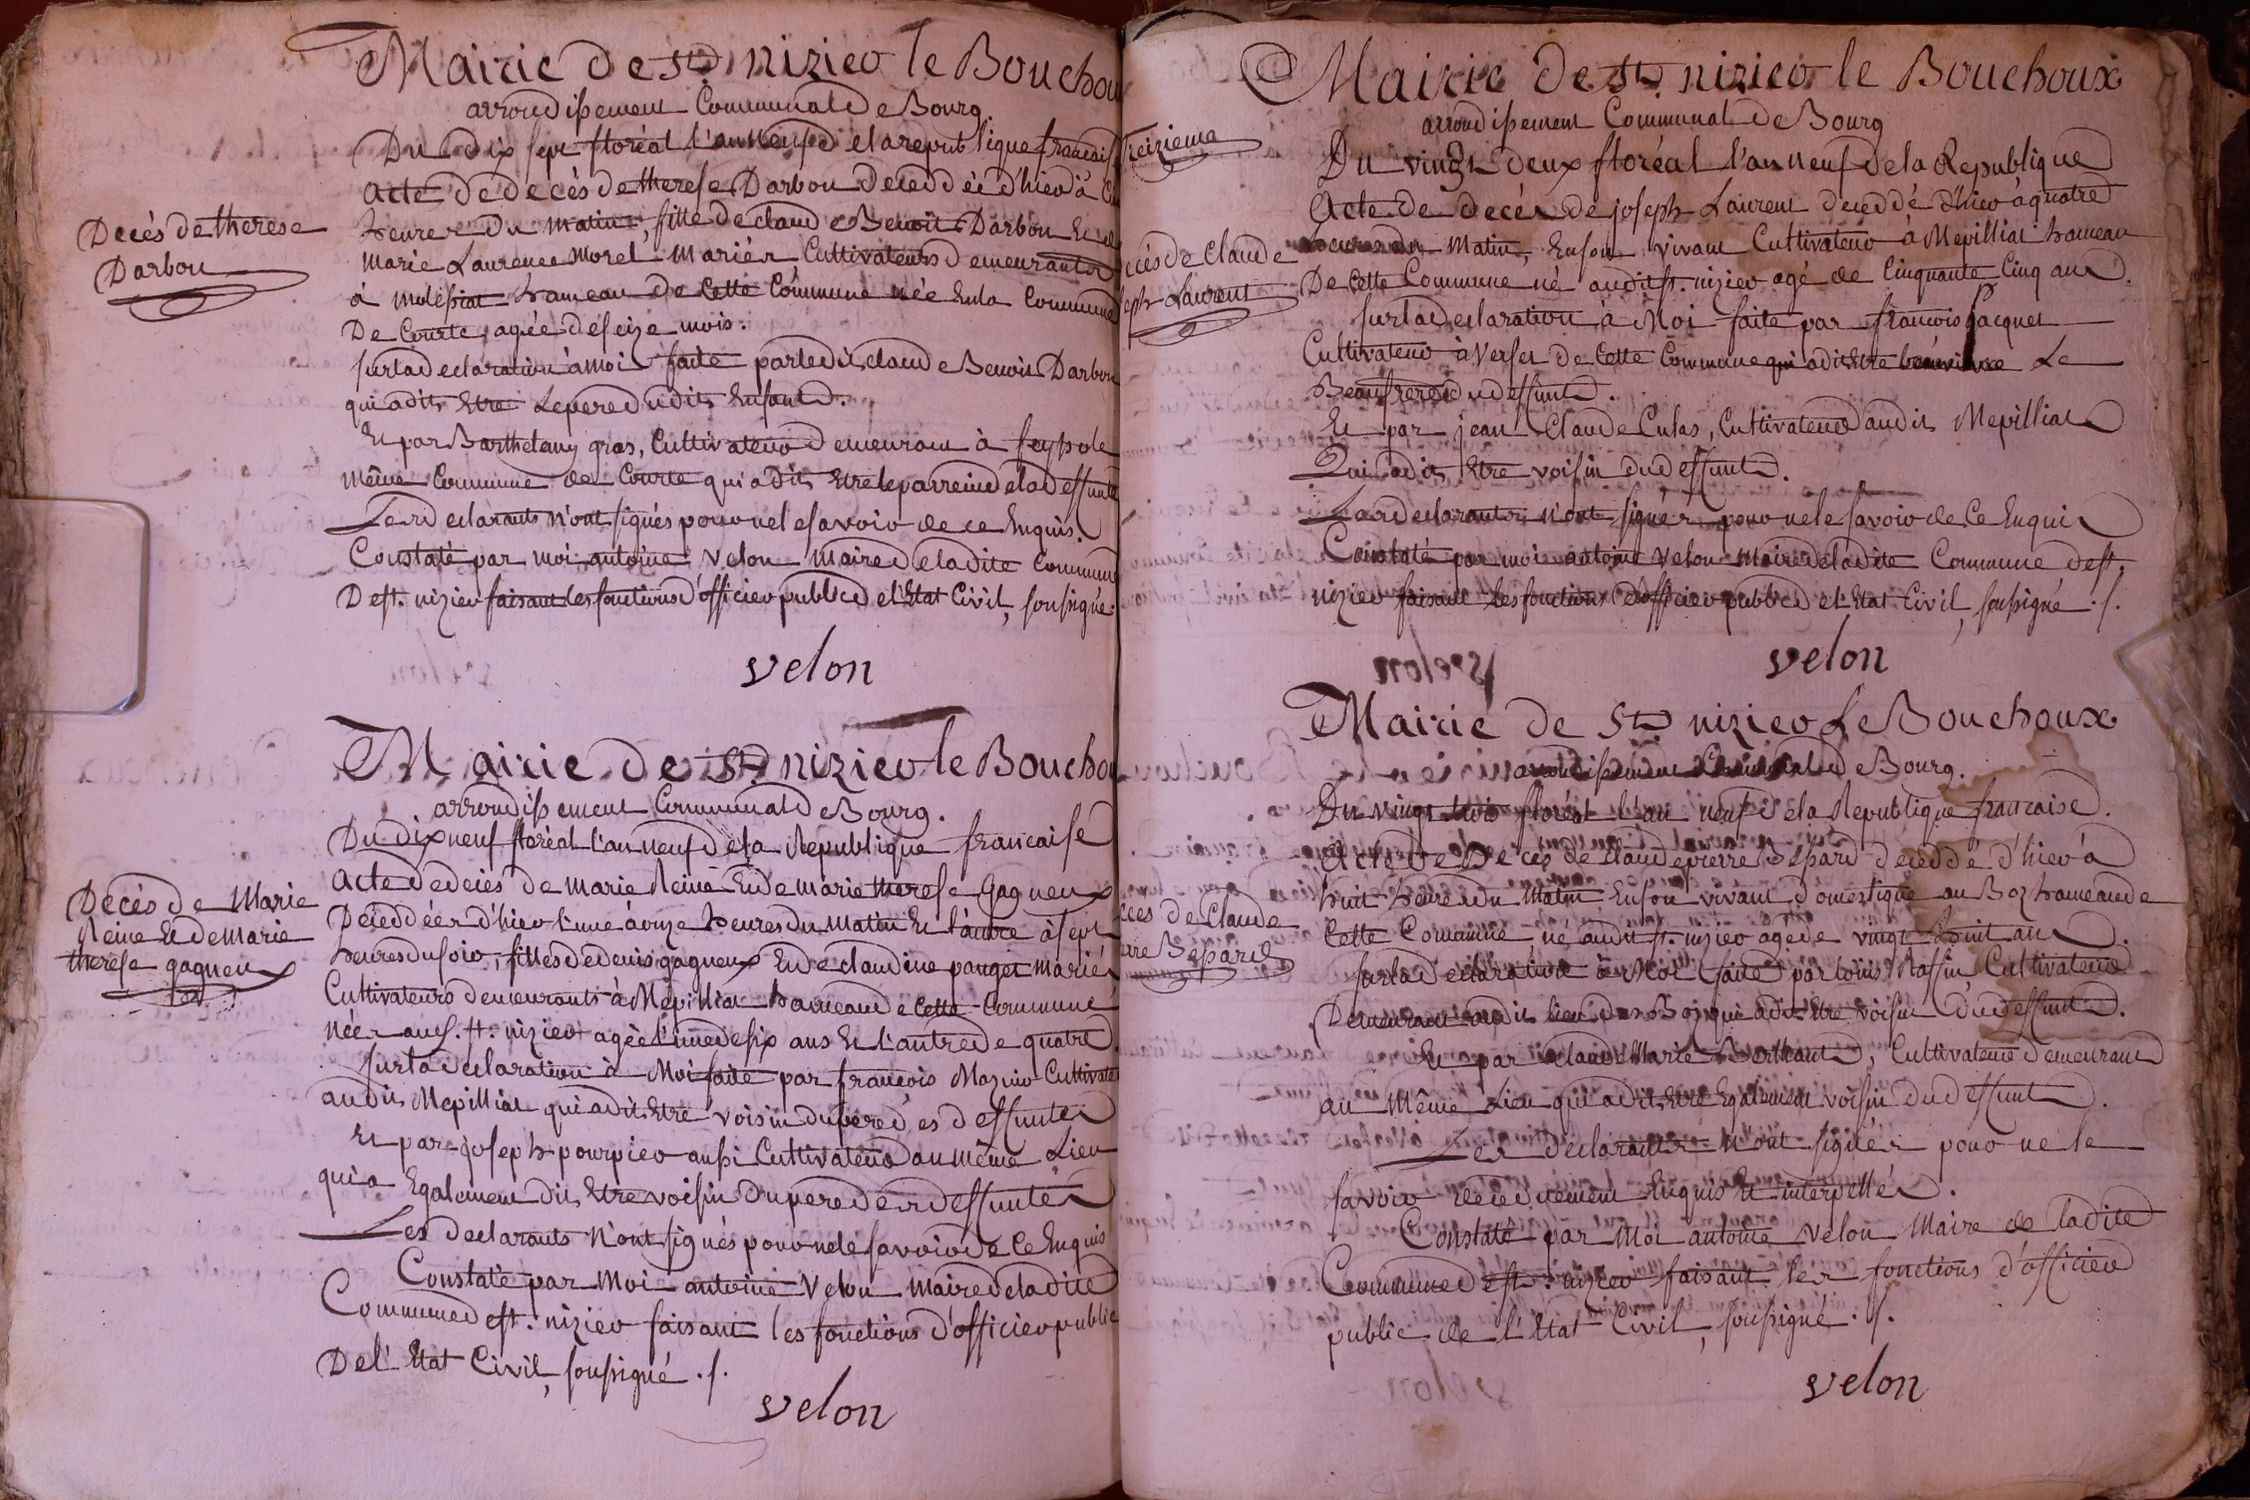 Mairie de St nizier le Bouchou
arrondissement Communal de Bourg.
Du dix sept floréal l'an neuf de la republique francais
Acte de decés de therese Darbon deceddée d'hier à
heures du matin, fille de claude Benoit Darbon Et de
marie Laurence Morel mariés Cultivateurs demeurants
à molissiat hameau de cette Commune née En la Commune
De Courte, agée de seize mois.
sur la declaration à moi faite par ledit claude Benoit Darbon
qui a dit Etre Le pere dudit Enfant.
Et par Barthelamy gros, Cultivateur demeurant à feysole
même Commune de Courte qui a dit Etre le parrein de la deffunte
Les declarants n'ont signés pour ne le savoir de ce Enquis.
Constaté par moi antoine velon maire de ladite Commune
De st. nizier faisant les fonctions d'officier public de l'Etat Civil, soussigné.
velon
Decès de therese
Darbon
Mairie de St nizier le Bouchou
arrondissement Communal de Bourg.
Du dix neuf floréal l'an neuf de la Republique francaise
Acte de decés de marie Reine Et de marie therese Gagneux
Deceddées d'hier l'une à onze heures du matin Et l'autre à sept
heures du soir, filles de denis gagneux Et de claudine panget mariés
Cultivateurs demeurants à Mépilliat hameau de cette Commune
Nées aud. st. nizier agée l'une de six ans Et l'autre de quatre.
sur la declaration à Moi faite par francois Mazuir Cultivate
audit Mepilliat qui a dit Etre voisin du pere des deffuntes
Et par joseph pourpier aussi Cultivateur au même Lieu
qui a Egalement dit Etre voisin du pere des deffuntes
Les declarants N'ont signés pour ne le savoir de ce Enquis
Constaté par Moi antoine Velon maire de ladite
Commune de st. nizier faisant les fonctions d'officier public
De l'Etat Civil, soussigné ./.
velon
Decès de Marie
Reine Et de Marie
therese gagneux
Mairie de St nizier le Bouchoux
arrondissement Communal de Bourg
Du vingt deux floréal l'an neuf de la Republique
Acte de decés de joseph Laurent deceddé d'hier à quatre
heures du Matin, En son vivant Cultivateur à Mepilliat hameau
De cette Commune né audit st. nizier agé de Cinquante Cinq ans.
sur la declaration à Moi faite par francois Jacquet
Cultivateur à Verset de cette Commune qui a dit Etre Le
Beaufrere du deffunt.
Et par jean Claude Culas, Cultivateur audit Mepilliat
Qui a dit Etre voisin du deffunt.
Les declarants n'ont signés pour ne le savoir de Ce Enquis
Constaté par moi antoine velon Maire de ladite Commune de st.
nizier faisant les fonctions d'officier public de l'Etat Civil, soussigné ./.
velon
treizieme
cès de Claude
seph Laurent
Mairie de St nizier Le Bouchoux
arrondissement Communal de Bourg.
Du vingt trois floréal l'an neuf de la Republique francaise.
Acte De Décés de claude pierre Bépard deceddé d'hier à
huit heures du Matin En son vivant domestique au Boz hameau de
Cette Commune né audit st. nizier agé de vingt huit ans.
sur la declaration à Moi faite par louis Raffin Cultivateur
Demeurant audit lieu du Boz qui a dit Etre voisin du deffunt.
Et par claude Marie Cultivateur demeurant
au Même Lieu qui a dit Etre Egalement voisin du deffunt.
Les declarants N'ont signés pour ne le
savoir de ce duement Enquis Et interpellés.
Constaté par Moi antoine velon Maire de ladite
Commune de st. nizier faisant les fonctions d'officier
public de l'Etat Civil, soussigné ./.
velon
cès de Claude
rre Bépard